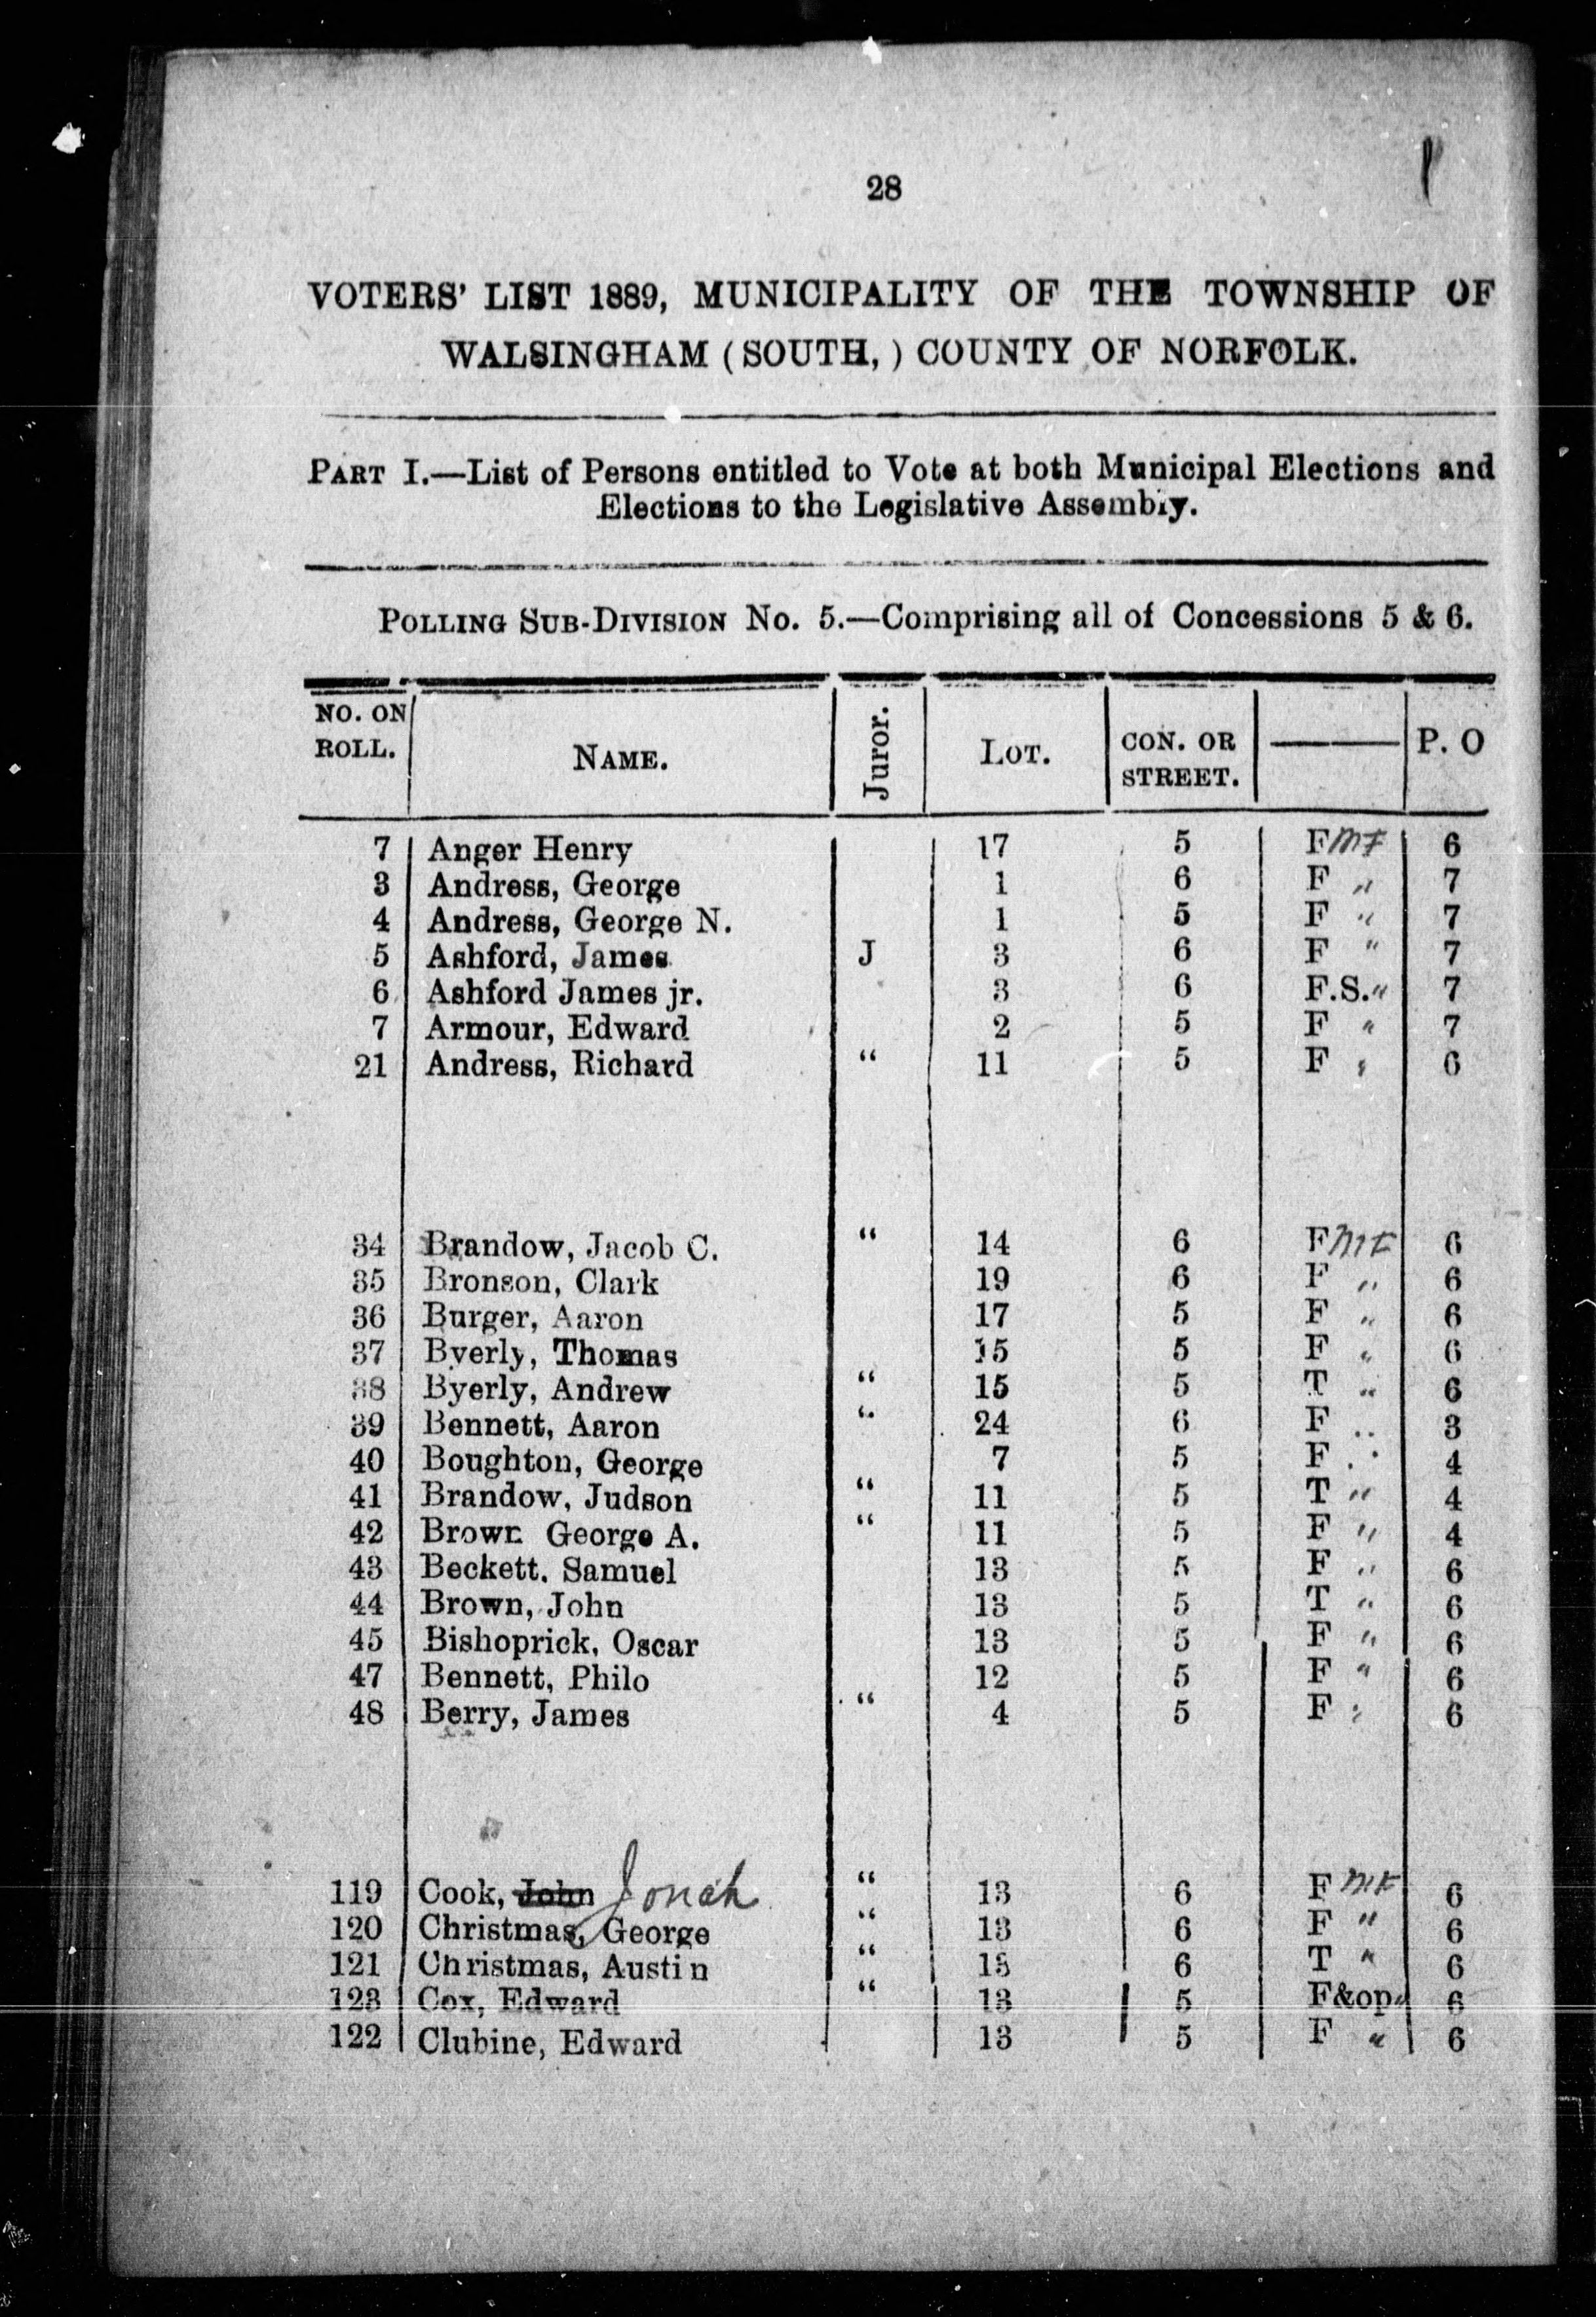 28
VOTERS' LIST 1889, MUNICIPALITY OF THE TOWNSHIP OF
WALSINGHAM (SOUTH,) COUNTY OF NORFOLK.
PART I.—List of Persons entitled to Vote at both Municipal Elections and
Elections to the Legislative Assembly.
POLLING SUB-DIVISION No. 5.—Comprising all of Concessions 5 & 6.
NO. ON ROLL. NAME. Juror. LOT. CON. OR STREET. ——— P. O
7 Anger Henry 17 5 F MF 6
3 Andress, George 1 6 F " 7
4 Andress, George N. 1 5 F " 7
5 Ashford, James J 3 6 F " 7
6 Ashford James jr. 3 6 F.S. " 7
7 Armour, Edward 2 5 F " 7
21 Andress, Richard “ 11 5 F " 6
34 Brandow, Jacob C. “ 14 6 F MF 6
35 Bronson, Clark 19 6 F " 6
36 Burger, Aaron 17 5 F " 6
37 Byerly, Thomas 15 5 F " 6
38 Byerly, Andrew “ 15 5 T " 6
39 Bennett, Aaron “ 24 6 F " 3
40 Boughton, George 7 5 F " 4
41 Brandow, Judson “ 11 5 T " 4
42 Brown George A. “ 11 5 F " 4
43 Beckett. Samuel 13 5 F " 6
44 Brown, John 13 5 T " 6
45 Bishoprick, Oscar 13 5 F " 6
47 Bennett, Philo 12 5 F " 6
48 Berry, James “ 4 5 F " 6
119 Cook, John Jonah “ 13 6 F MF 6
120 Christmas, George “ 13 6 F " 6
121 Christmas, Austin “ 13 6 T " 6
123 Cox, Edward “ 13 5 F&op " 6
122 Clubine, Edward 13 5 F " 6